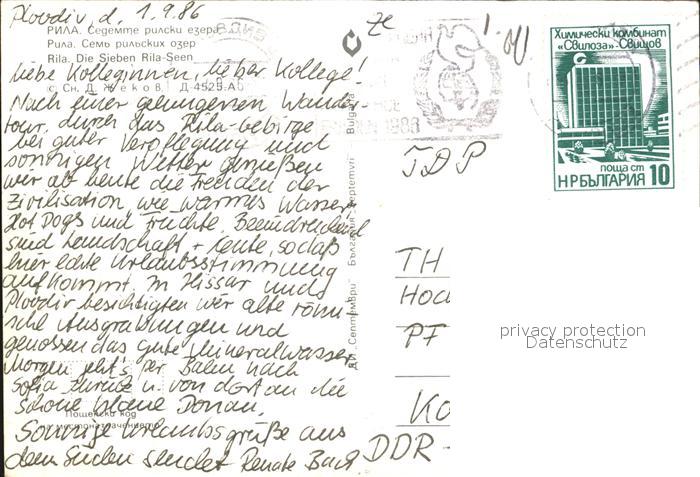 Plovdiv, d. 1.9.86
РИЛА. Седемте рилски езера
Рила. Семь рильских озер
Rila. Die Sieben Rila-Seen
© Сн. Д. Жеков, Д-4525-АБ
Liebe Kolleginnen, lieber Kollege!
Nach einer gelungenen Wander-
tour durch das Rila-Gebirge
bei guter Verpflegung und
sonnigen Wetter genießen
wir ab heute die Freuden der
Zivilisation, wie warmes Wasser,
Hot Dogs und Früchte. Beeindruckend
sind Landschaft + Leute, sodaß
hier echte Urlaubsstimmung
aufkommt. In Hissar und
Plovdiv besichtigten wir alte römi-
sche Ausgrabungen und
genossen das gute Mineralwasser.
Morgen geht's per Bahn nach
Sofia zurück u. von dort an die
schöne blaue Donau.
Пощенски код
местоназначението
Sonnige Urlaubsgrüße aus
dem Süden sendet Renate Bach
ДИ „Септември" България Septemvri Bulgaria
1986
Химически комбинат
«Свилоза»-Свищов
поща ст
НРБЪЛГАРИЯ 10
TH
Hoc
PF
privacy protection
Datenschutz
Ko
DDR -